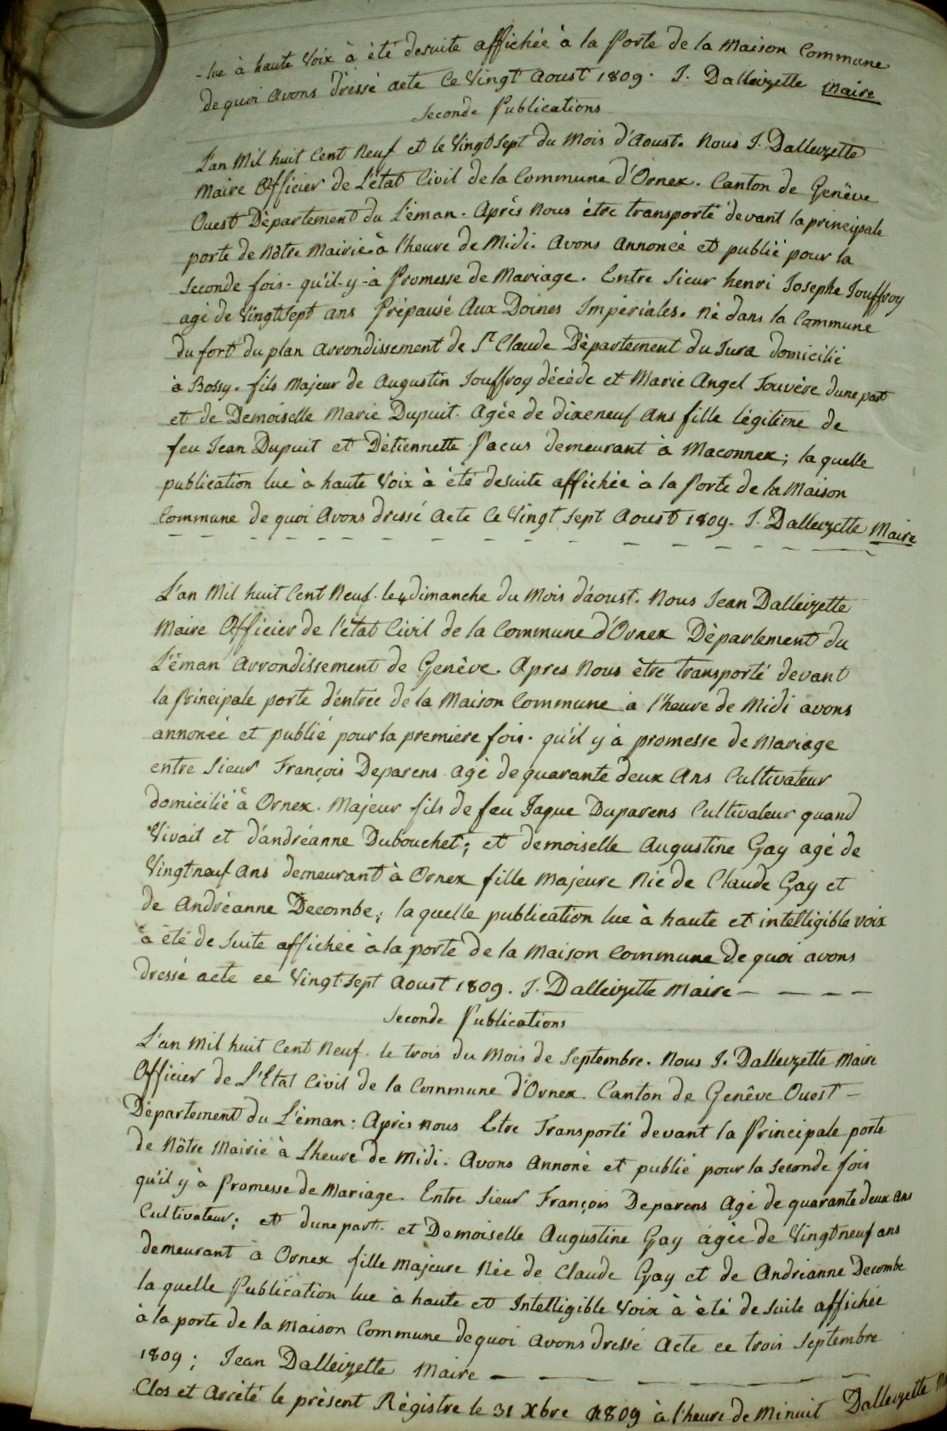 -lue à haute Voix à été desuite affichée à la Porte de la Maison Commune
de quoi avons dressé acte Ce Vingt Aoust 1809. J. Dalleizette Maire
Seconde Publications
L'an Mil huit Cent Neuf et le Vingt Sept du Mois d'Aoust. Nous J. Dalleizette
Maire Officier de L'état Civil de la Commune d'Ornex. Canton de Genêve
Ouest Département du Léman. Après Nous être transporté devant la principale
porte de Nôtre Mairie à l'heure de Midi. Avons Annoncé et publié pour la
Seconde fois. qu'il-y-à Promesse de Mariage. Entre Sieur henri Josephe Jouffroy
agé de Vingt Sept ans Prépausé Aux Doines Impériales. Né dans la Commune
du fort du plan arrondissement de St Claude Département du Jura domicilié
à Bossy. fils Majeur de Augustin Jouffroy décédé et Marie Angel Jouvère dune part
et de Demoiselle Marie Dupuit. Agée de dixeneuf Ans fille légitime de
feu Jean Dupuit et Détiennette Pacus demeurant à Maconnex; la quelle
publication lue à haute Voix à été desuite affichée à la Porte de la Maison
Commune de quoi Avons dressé Acte Ce Vingt Sept Aoust 1809. J. Dalleizette Maire
L'an Mil huit Cent Neuf. le 4 dimanche du Mois d'aoust. Nous Jean Dalleizette
Maire Officier de l'état Civil de la Commune d'Ornex Département du
Léman Arrondissement de Genève. Apres Nous être transporté devant
la Principale porte d'entrée de la Maison Commune à l'heure de Midi avons
annoncé et publié pour la première fois. qu'il y à promesse de Mariage
entre Sieur François Deparens agé de quarante deux Ans Cultivateur
domicilié à Ornex. Majeur fils de feu Jaque Duparens Cultivateur quand
Vivait et d'andréanne Dubouchet; et demoiselle Augustine Gay agé de
Vingtneuf Ans demeurant à Ornex fille Majeure Née de Claude Gay et
de Andréanne Decombe; laquelle publication lue à haute et intelligible voix
à été de Suite affichée à la porte de la Maison Commune de quoi avons
dressé acte ce Vingt Sept Aoust 1809. J. Dalleizette Maire
Seconde Publications
L'an Mil huit Cent Neuf. le trois du Mois de Septembre. Nous J. Dalleizette Maire
Officier de L'Etat Civil de la Commune d'Ornex. Canton de Genêve Ouest
Département du Léman: Après nous Etre Transporté devant la Principale porte
de Nôtre Mairie à Lheure de Midi. Avons Annoné et publié pour la Seconde fois
qu'il y à Promesse de Mariage. Entre Sieur François Deparens Agé de quarante deux ans
Cultivateur; et dune part. et Demoiselle Augustine Gay agée de Vingtneuf ans
demeurant à Ornex fille Majeure Née de Claude Gay et de Andrianne Decombe
la quelle Publication lue à haute et Intelligible Voix à été de Suite affichée
à la porte de la Maison Commune de quoi avons dressé Acte ce trois Septembre
1809; Jean Dalleizette Maire
Clos et Arrêté le présent Régistre le 31 Xbre 1809 à l'heure de Minuit Dalleizette